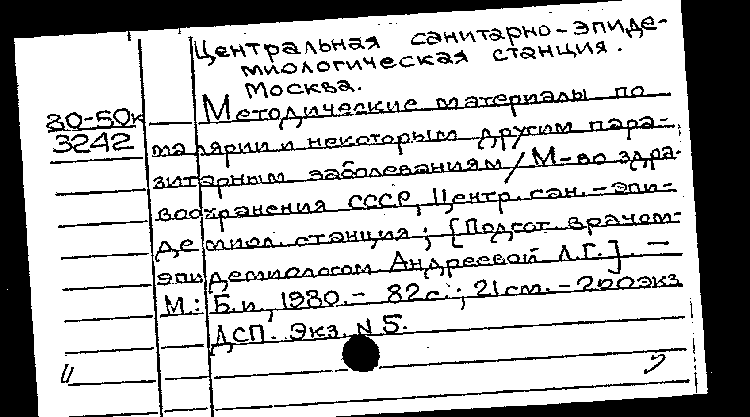 Центральная санитарно-эпиде-
миологическая станция.
Москва.
80-50к
3242
Методические материалы по
малярии и некоторым другим пара-
зитарным заболеваниям / М-во здра-
воохранения СССР, Центр. сан.-эпи-
демиол. станция; [Подгот. врачом-
эпидемиологом Андреевой Л.Г.]. -
М.: Б.и, 1980. - 82с.; 21см. - 200экз
ДСП. Экз. N 5.